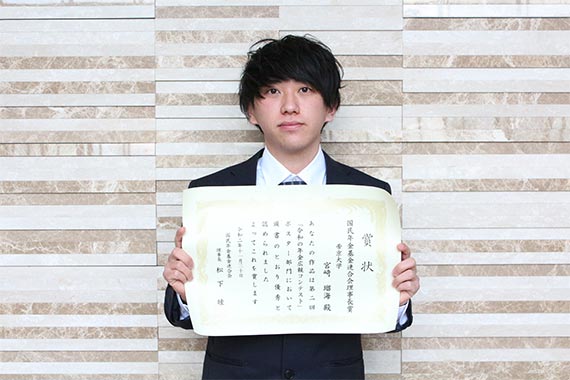 賞状
国民年金基金連合会理事長賞
帝京大学
宮崎 瑠海 殿
あなたの作品は第二回
「令和の年金広報コンテスト」
ポスター部門において
頭書のとおり優秀と
認められました
よってこれを賞します
令和二年十一月三十日
国民年金基金連合会
理事長 松下 睦